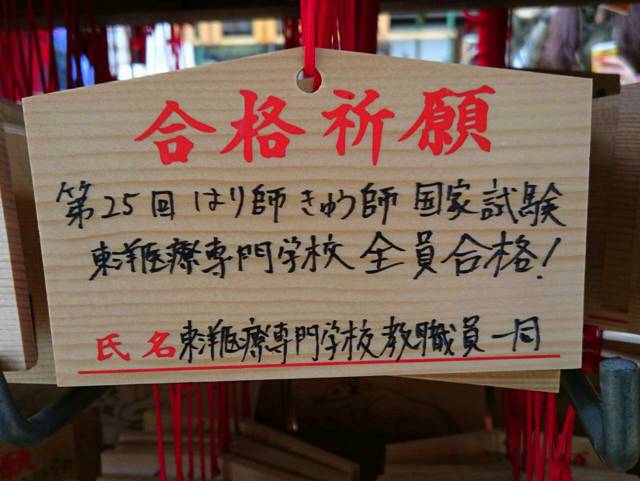 合格祈願
第25回 はり師 きゅう師 国家試験
東洋医療専門学校 全員合格!
氏名 東洋医療専門学校教職員一同